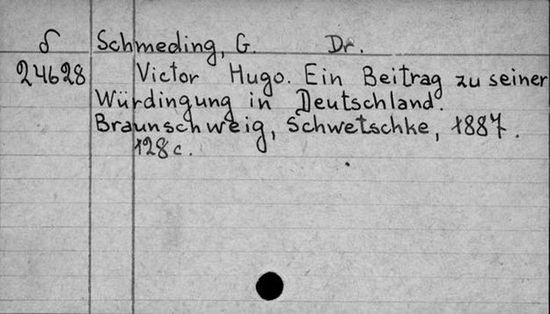 δ Schmeding, G. Dr.
24628 Victor Hugo. Ein Beitrag zu seiner
Würdingung in Deutschland.
Braunschweig, Schwetschke, 1887.
128 c.